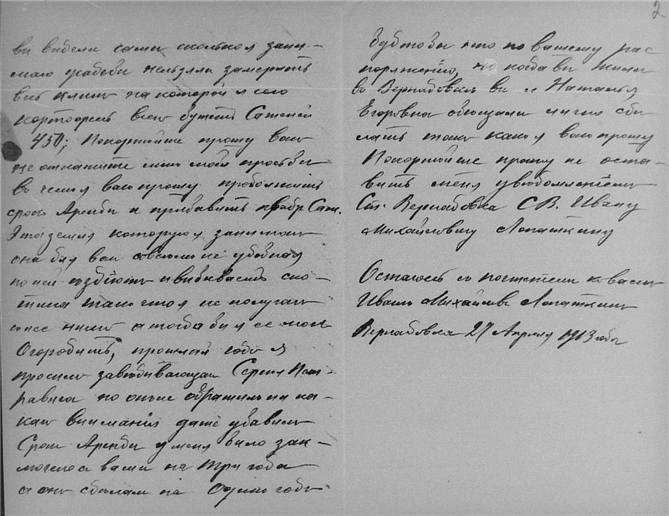 2
вы видели сами сколько я зани-
маю усадьбы нельзяли замерить
весь клинъ на которой я сею
картофель всего будетъ Саженей
450; Покорнейше прошу васъ
не откажите мне моей прозьбы
въ чемъ я васъ прошу продолжить
срокъ Аренды и прибавить квадр. Саж.
Эта земля которую я занимаю
она для вас совсемъ не удобная
по ней ездиютъ и выбиваетъ ско-
тина такъ что я не получаю
с нее ничего а тогда бы я ее мог
Огородить, прошлай годъ я
просилъ заведывающаго Сергея
но онъ не обратилъ ни ка-
каго внимания даже убавилъ
Срокъ Аренды у меня было
с вами на три года
а онъ сделалъ на Одинъ годъ
будтобы что по вашему рас
поряжению, но когда вы жили
въ Вернадовке вы и Наталья
Егоровна обещали мне сде
лать такъ какъ я васъ прошу
Покорнейше прошу не оста-
вить меня уведомлениемъ
Ст. Вернадовка С.В. Ивану
Михайловичу Лопаткину
Остаюсь съ почтениемъ к вамъ
Иванъ Михайловъ Лопаткинъ
Вернадовка 27 Апреля 1913 года